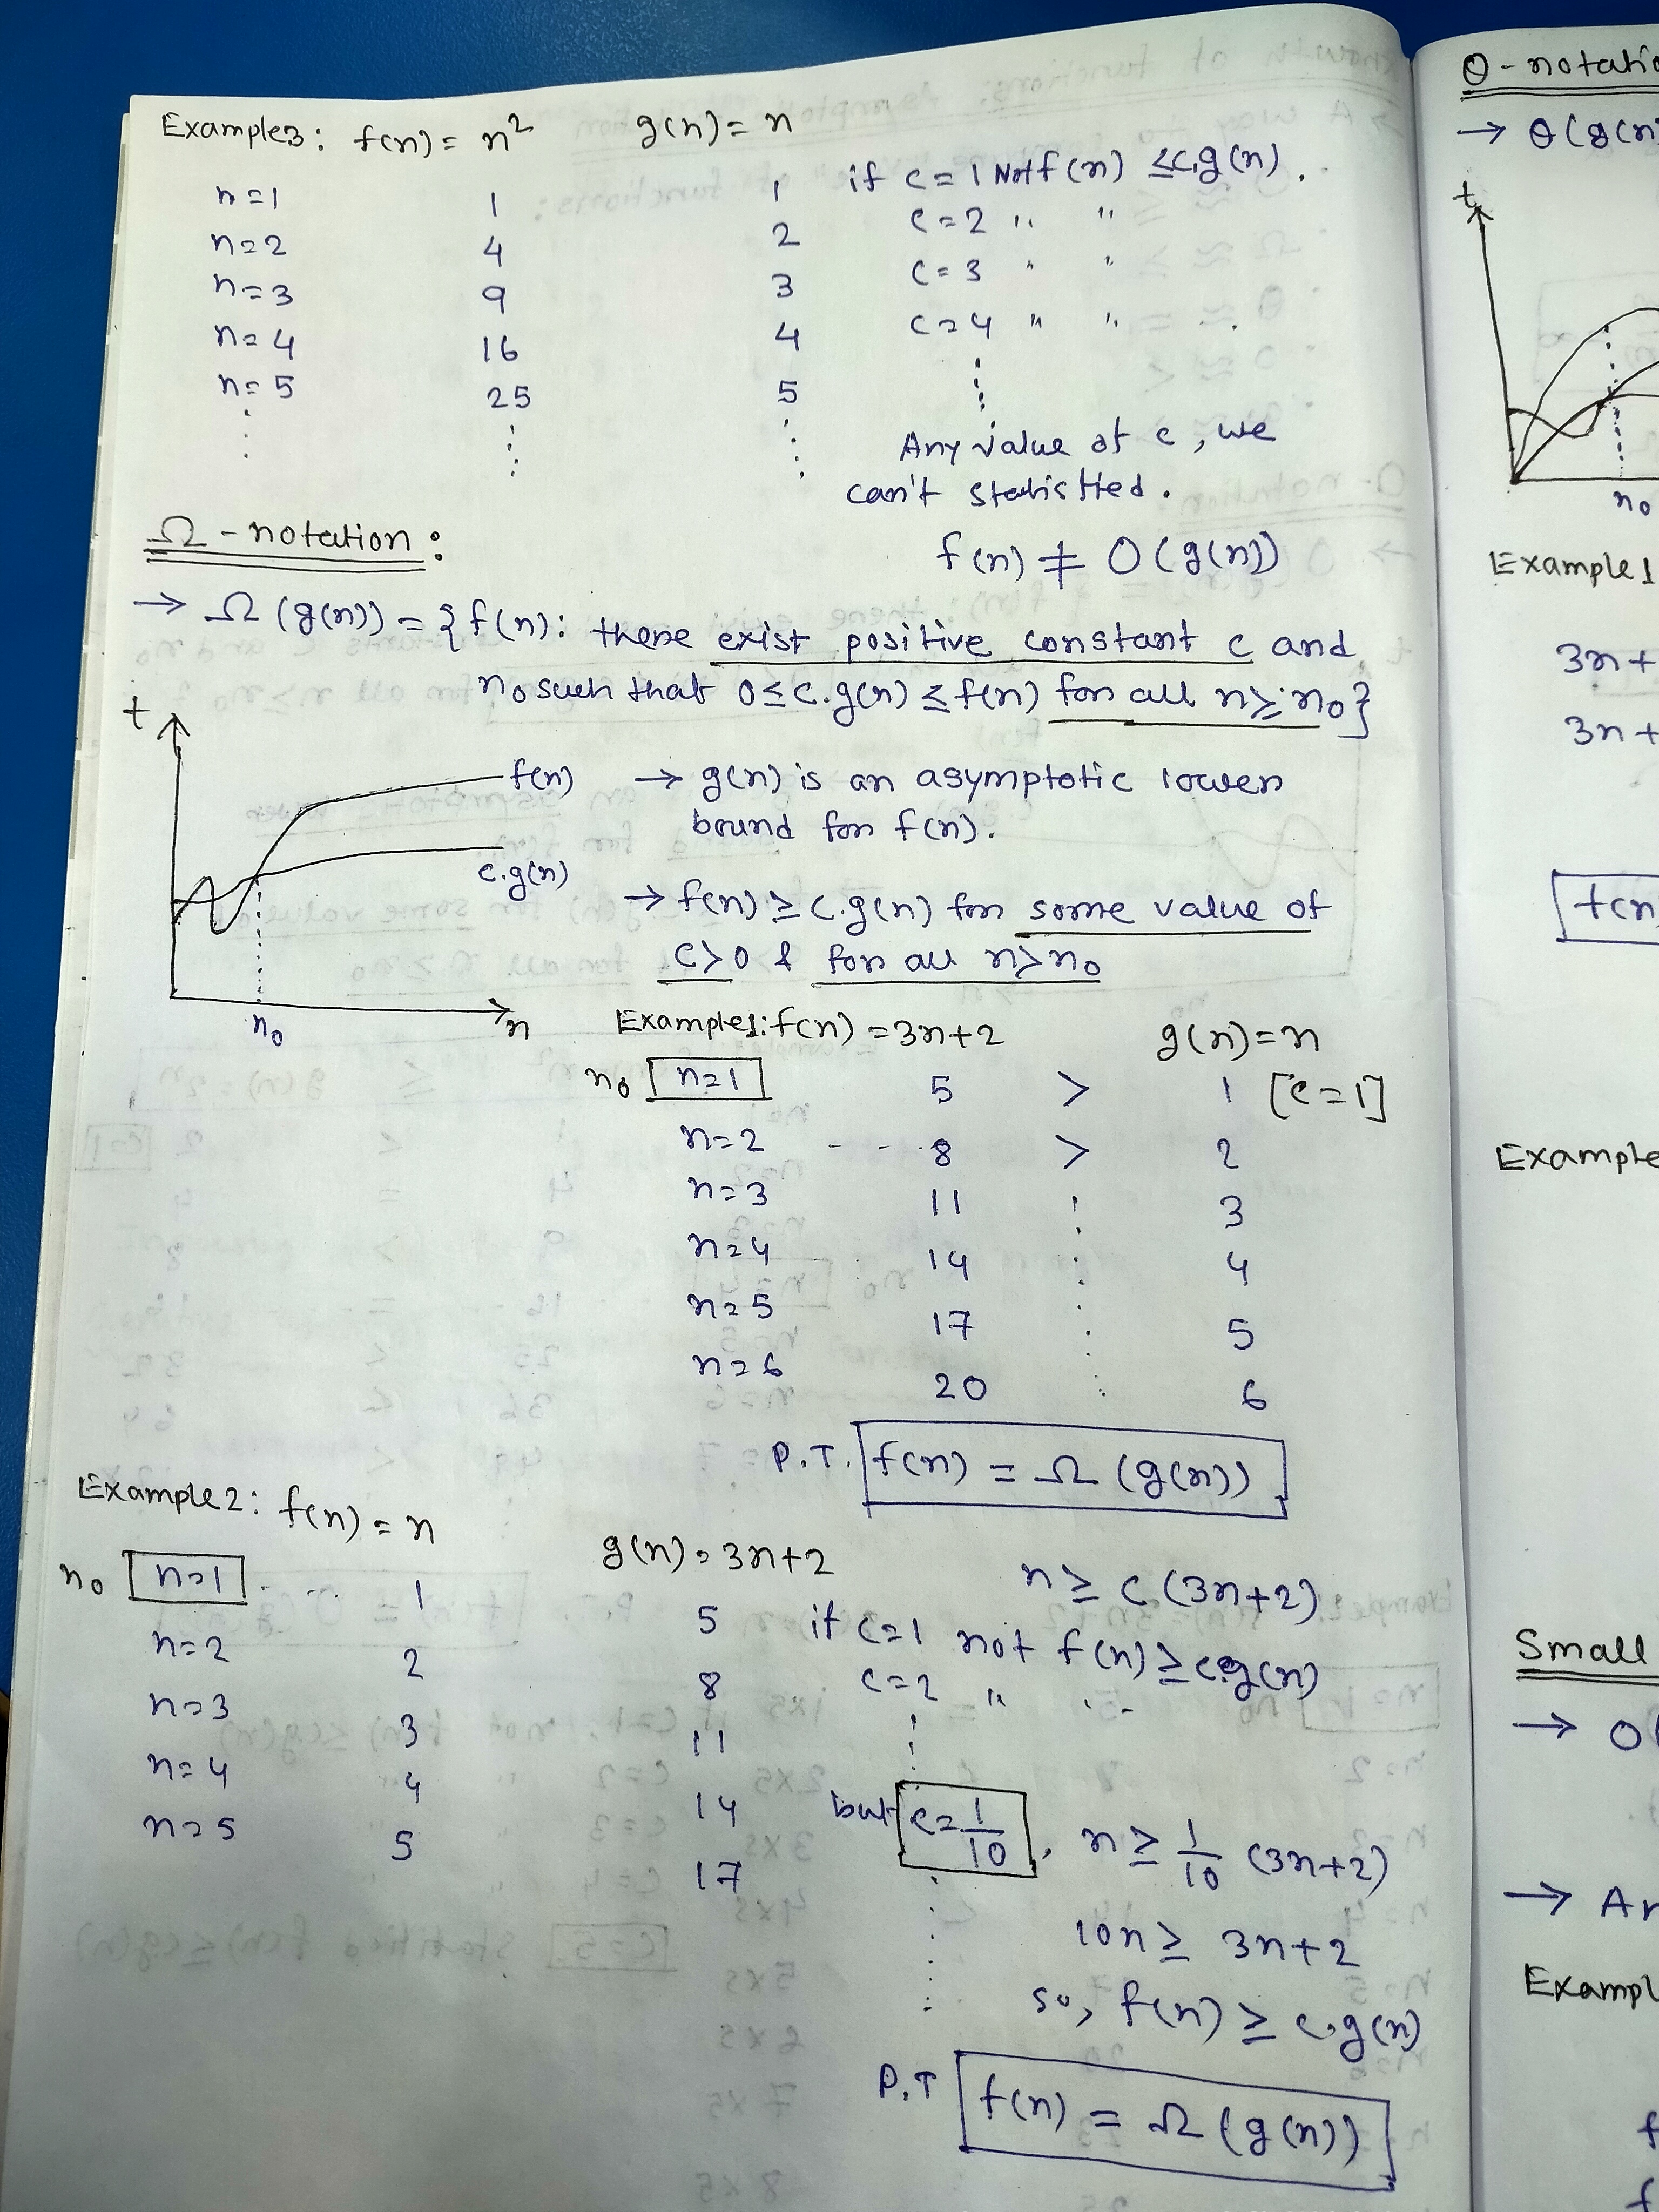 Example3: f(n) = n² g(n) = n
n=1 1 1 if c=1 Not f(n) ≤ c.g(n).
n=2 4 2 c=2 " "
n=3 9 3 c=3 " "
n=4 16 4 c=4 " "
n=5 25 5
Any value of c, we
can't
f(n) ≠ O(g(n))
Ω-notation:
→ Ω(g(n)) = {f(n): there exist positive constant c and
n₀ such that 0 ≤ c.g(n) ≤ f(n) for all n ≥ n₀}
t
f(n)
c.g(n)
n₀
n
→ g(n) is an asymptotic lower
bound for f(n).
→ f(n) ≥ c.g(n) for some value of
c>0 & for all n>n₀
Example1: f(n) = 3n+2 g(n) = n
n₀ n=1 5 > 1 [c=1]
n=2 8 > 2
n=3 11 3
n=4 14 4
n=5 17 5
n=6 20 6
P.T. f(n) = Ω(g(n))
Example2: f(n) = n g(n) = 3n+2
n₀ n=1 1 5
n=2 2 8
n=3 3 11
n=4 4 14
n=5 5 17
n ≥ c(3n+2)
if c=1 not f(n) ≥ c.g(n)
c=2 " "
but c=1/10, n ≥ 1/10 (3n+2)
10n ≥ 3n+2
so, f(n) ≥ c.g(n)
P.T f(n) = Ω(g(n))
→ θ(g(n)
t
n₀
Example1
3n+
3n+
Example
Small
→
→